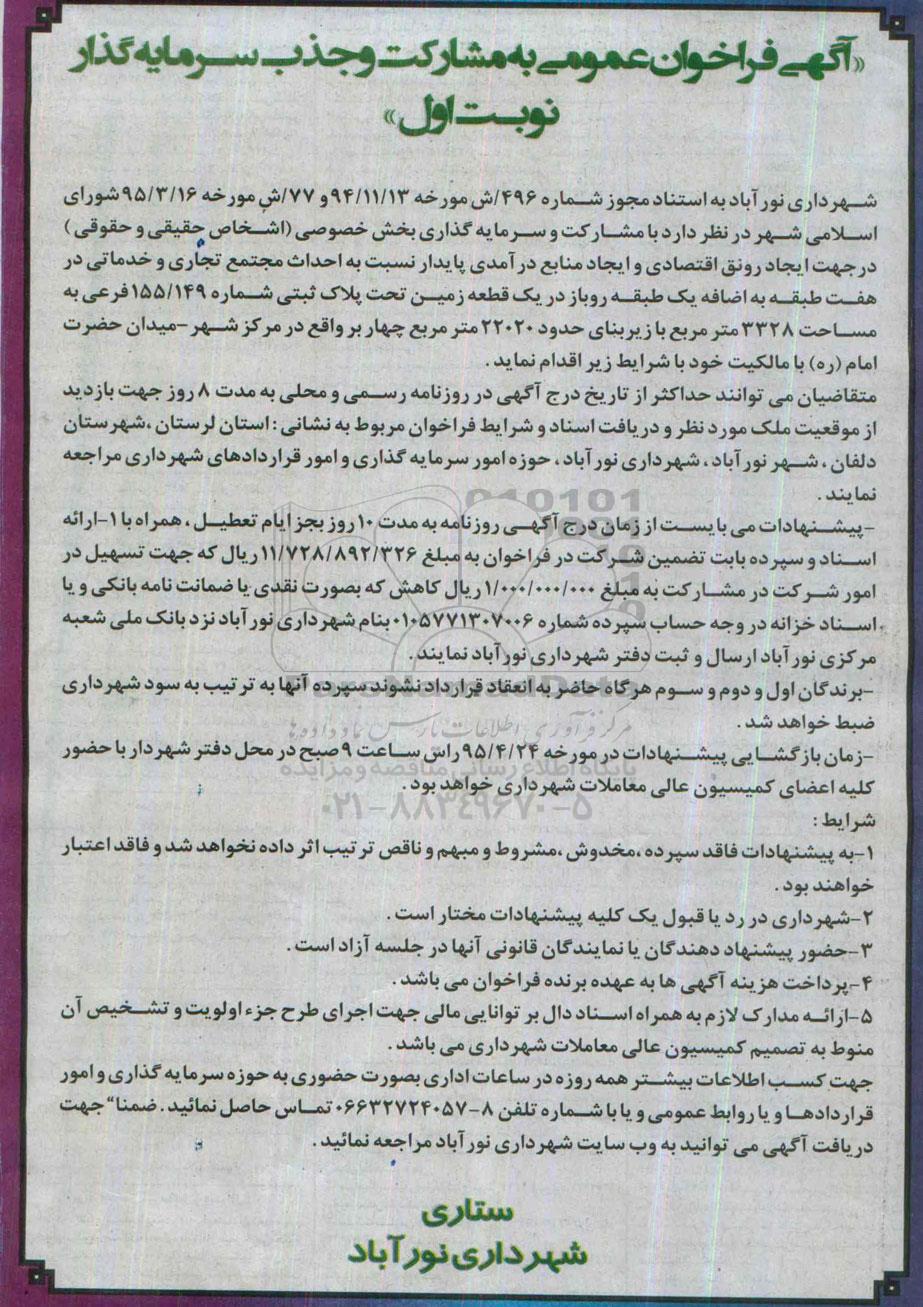 «آگهی فراخوان عمومی به مشارکت و جذب سرمایه گذار
نوبت اول»
شهرداری نورآباد به استناد مجوز شماره ۴۹۶/ش مورخه ۹۴/۱۱/۱۳ و ۷۷/ش مورخه ۹۵/۳/۱۶ شورای
اسلامی شهر در نظر دارد با مشارکت و سرمایه گذاری بخش خصوصی (اشخاص حقیقی و حقوقی)
درجهت ایجاد رونق اقتصادی و ایجاد منابع درآمدی پایدار نسبت به احداث مجتمع تجاری و خدماتی در
هفت طبقه به اضافه یک طبقه روباز در یک قطعه زمین تحت پلاک ثبتی شماره ۱۵۵/۱۴۹ فرعی به
مساحت ۳۳۲۸ متر مربع با زیربنای حدود ۲۲۰۲۰ متر مربع چهار بر واقع در مرکز شهر -میدان حضرت
امام (ره) با مالکیت خود با شرایط زیر اقدام نماید.
متقاضیان می توانند حداکثر از تاریخ درج آگهی در روزنامه رسمی و محلی به مدت ۸ روز جهت بازدید
از موقعیت ملک مورد نظر و دریافت اسناد و شرایط فراخوان مربوط به نشانی: استان لرستان، شهرستان
دلفان، شهر نورآباد، شهرداری نورآباد، حوزه امور سرمایه گذاری و امور قراردادهای شهرداری مراجعه
نمایند.
-پیشنهادات می بایست از زمان درج آگهی روزنامه به مدت ۱۰ روز بجز ایام تعطیل، همراه با ۱-ارائه
اسناد و سپرده بابت تضمین شرکت در فراخوان به مبلغ ۱۱/۷۲۸/۸۹۲/۳۲۶ ریال که جهت تسهیل در
امور شرکت در مشارکت به مبلغ ۱/۰۰۰/۰۰۰/۰۰۰ ریال کاهش که بصورت نقدی یا ضمانت نامه بانکی و یا
اسناد خزانه در وجه حساب سپرده شماره ۰۱۰۵۷۷۱۳۰۷۰۰۶ بنام شهرداری نورآباد نزد بانک ملی شعبه
مرکزی نورآباد ارسال و ثبت دفتر شهرداری نورآباد نمایند.
-برندگان اول و دوم و سوم هرگاه حاضر به انعقاد قرارداد نشوند سپرده آنها به ترتیب به سود شهرداری
ضبط خواهد شد.
-زمان بازگشایی پیشنهادات در مورخه ۹۵/۴/۲۴ راس ساعت ۹ صبح در محل دفتر شهردار با حضور
پایگاه اطلاع رسانی مناقصه و مزایده
کلیه اعضای کمیسیون عالی معاملات شهرداری خواهد بود.
۰۲۱-۸۸۳۴۹۶۷۰-۵
شرایط:
۱-به پیشنهادات فاقد سپرده، مخدوش، مشروط و مبهم و ناقص ترتیب اثر داده نخواهد شد و فاقد اعتبار
خواهند بود.
۲-شهرداری در رد یا قبول یک کلیه پیشنهادات مختار است.
۳-حضور پیشنهاد دهندگان یا نمایندگان قانونی آنها در جلسه آزاد است.
۴-پرداخت هزینه آگهی ها به عهده برنده فراخوان می باشد.
۵-ارائه مدارک لازم به همراه اسناد دال بر توانایی مالی جهت اجرای طرح جزء اولویت و تشخیص آن
منوط به تصمیم کمیسیون عالی معاملات شهرداری می باشد.
جهت کسب اطلاعات بیشتر همه روزه در ساعات اداری بصورت حضوری به حوزه سرمایه گذاری و امور
قراردادها و یا روابط عمومی و یا با شماره تلفن ۸-۰۶۶۳۲۷۲۴۰۵۷ تماس حاصل نمائید. ضمنا" جهت
دریافت آگهی می توانید به وب سایت شهرداری نورآباد مراجعه نمائید.
ستاری
شهرداری نورآباد